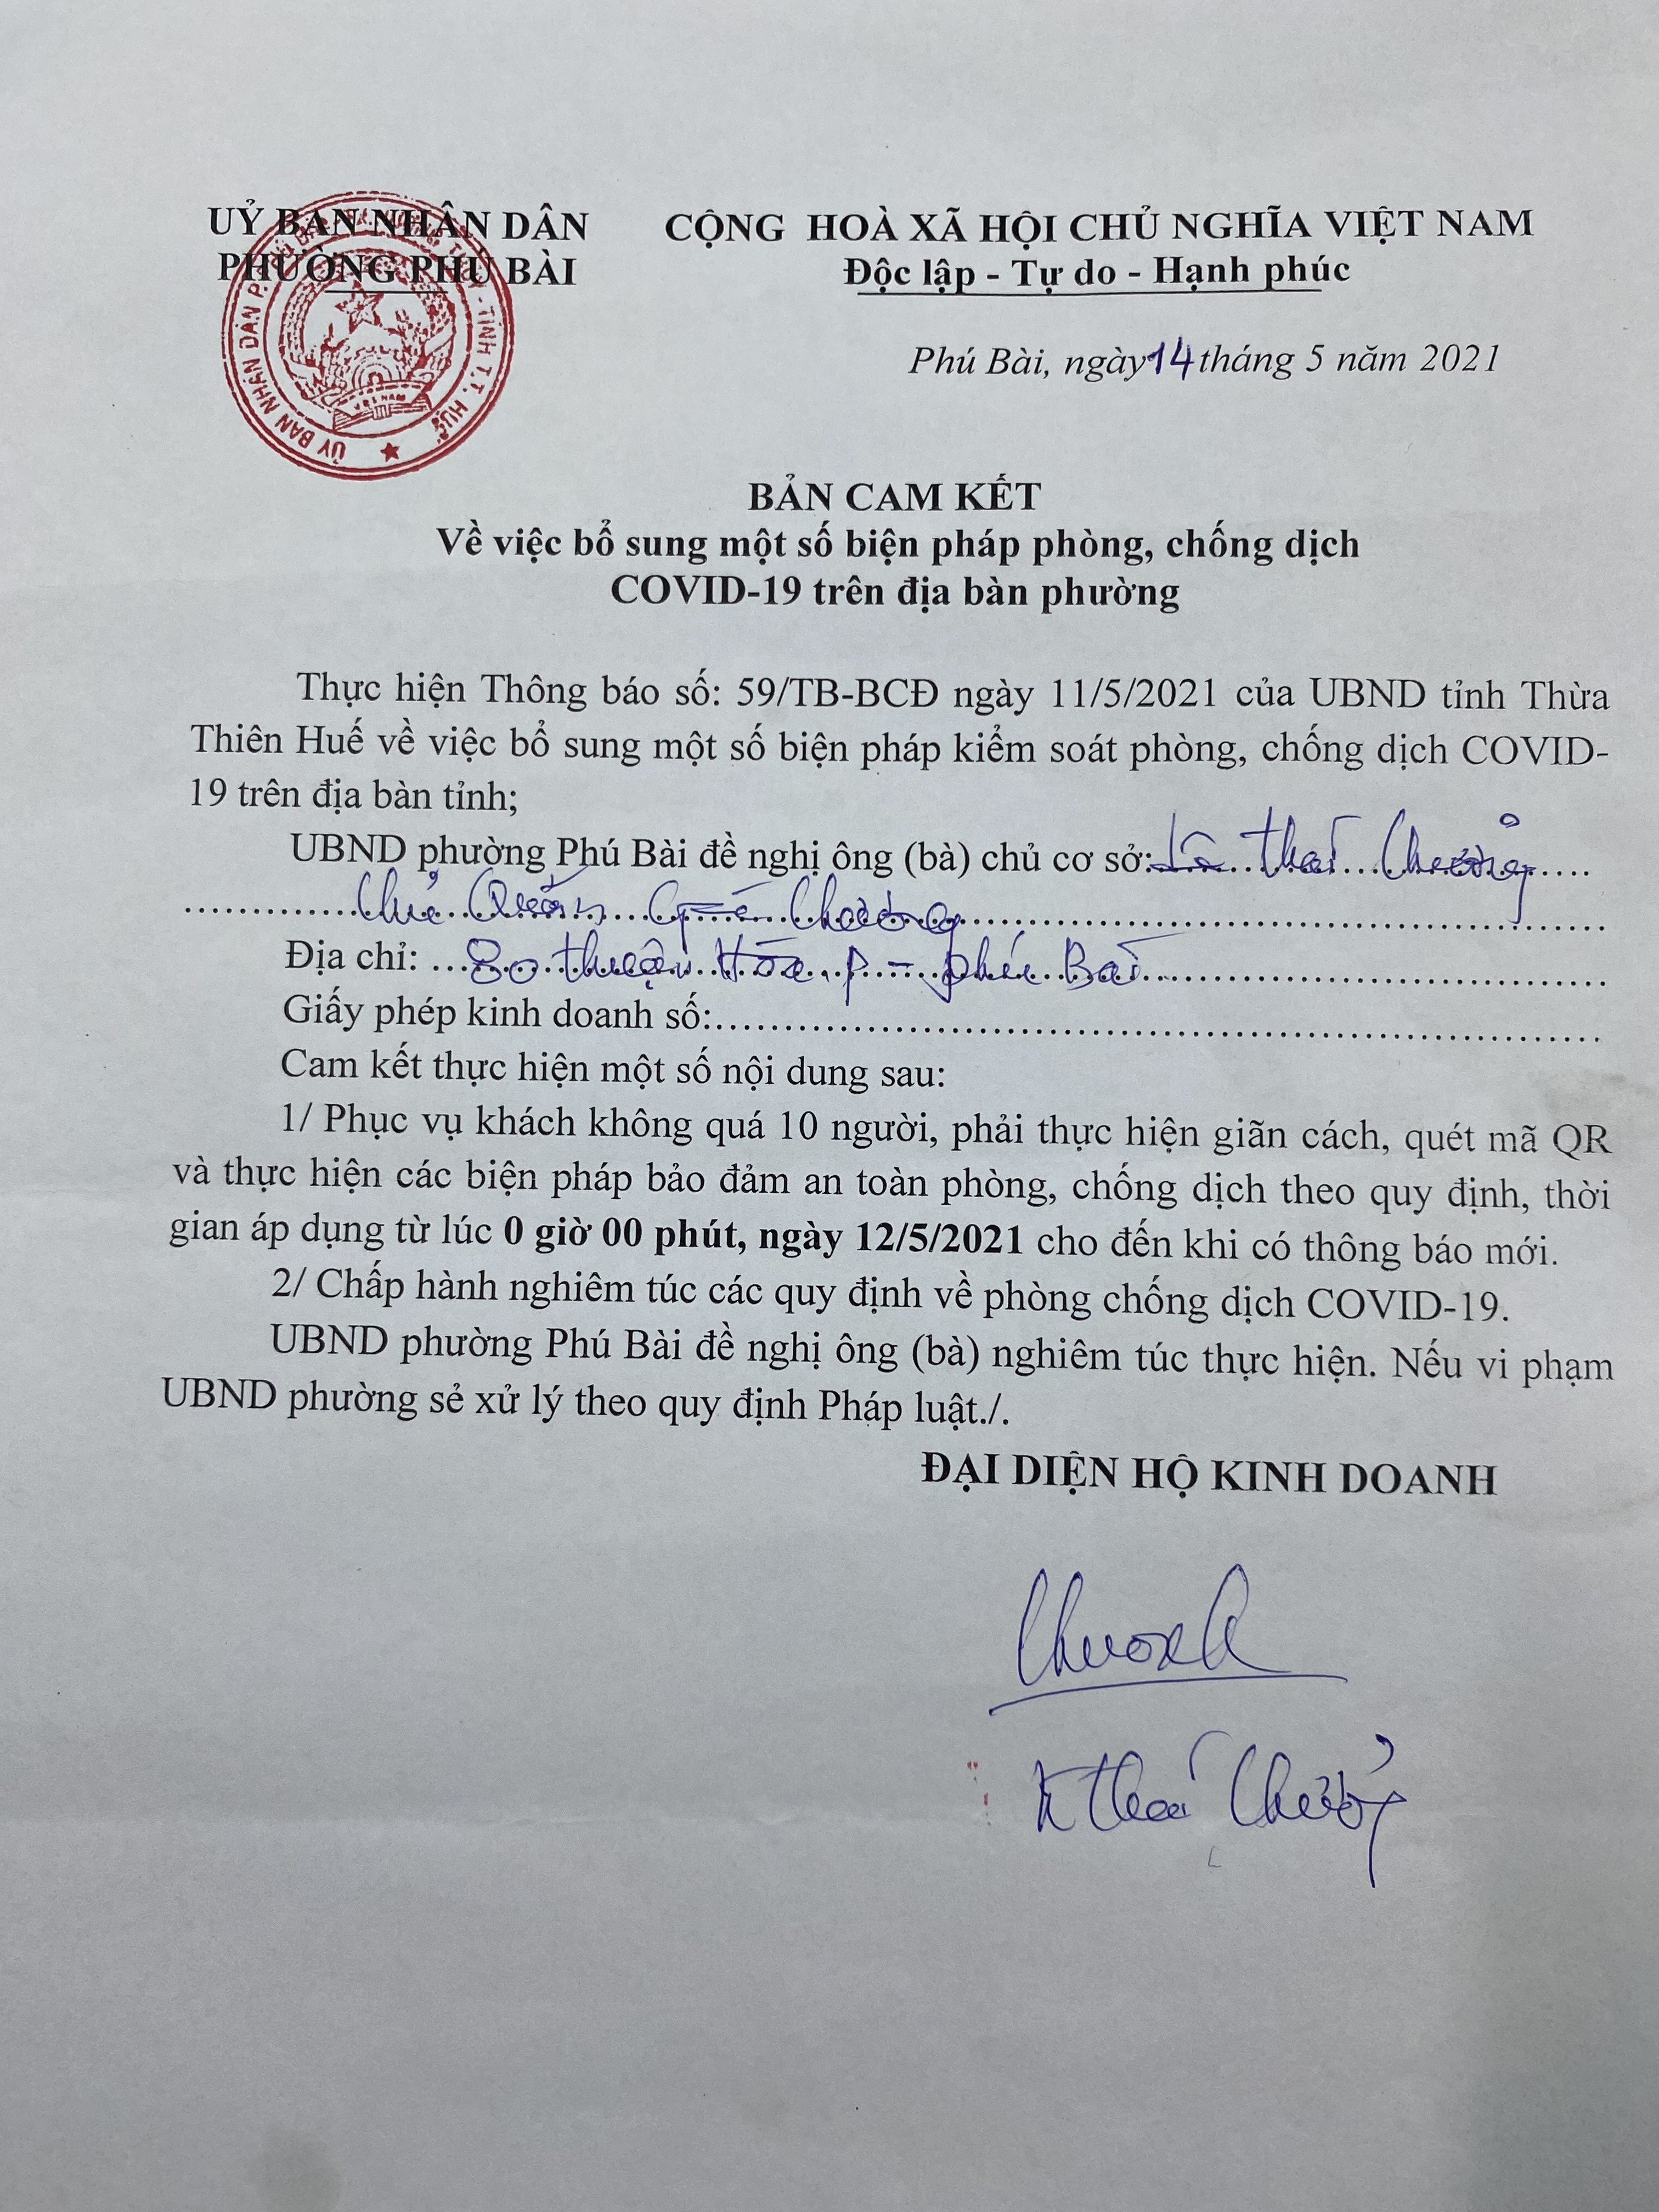 UỶ BAN NHÂN DÂN
PHƯỜNG PHÚ BÀI
CỘNG HOÀ XÃ HỘI CHỦ NGHĨA VIỆT NAM
Độc lập - Tự do - Hạnh phúc
Phú Bài, ngày 14 tháng 5 năm 2021
ỦY BAN NHÂN DÂN P. - TỈNH T.T. HUẾ
VIỆT NAM
BẢN CAM KẾT
Về việc bổ sung một số biện pháp phòng, chống dịch
COVID-19 trên địa bàn phường
Thực hiện Thông báo số: 59/TB-BCĐ ngày 11/5/2021 của UBND tỉnh Thừa
Thiên Huế về việc bổ sung một số biện pháp kiểm soát phòng, chống dịch COVID-
19 trên địa bàn tỉnh;
UBND phường Phú Bài đề nghị ông (bà) chủ cơ sở: Thái Chưởng
Chủ Quán Chưởng
Địa chỉ: 80 Thuận Hóa P - Phú Bài
Giấy phép kinh doanh số:
Cam kết thực hiện một số nội dung sau:
1/ Phục vụ khách không quá 10 người, phải thực hiện giãn cách, quét mã QR
và thực hiện các biện pháp bảo đảm an toàn phòng, chống dịch theo quy định, thời
gian áp dụng từ lúc 0 giờ 00 phút, ngày 12/5/2021 cho đến khi có thông báo mới.
2/ Chấp hành nghiêm túc các quy định về phòng chống dịch COVID-19.
UBND phường Phú Bài đề nghị ông (bà) nghiêm túc thực hiện. Nếu vi phạm
UBND phường sẻ xử lý theo quy định Pháp luật./.
ĐẠI DIỆN HỘ KINH DOANH
Thái Chưởng